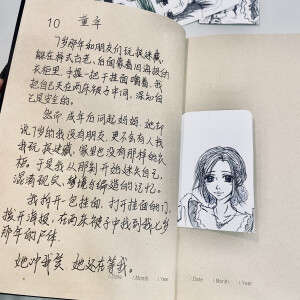 10 童年
7岁那年和朋友们玩捉迷藏,
躲在样式古老、台面靠着旧海报的
衣柜里,手握一把干挂面嚼着。我
把自己夹在两床被子中间,深知自
己是安全的。
然而成年后问起妈妈,她却
说7岁的我没有朋友,更不会有人找
我玩捉迷藏,家里也没有那样的衣
柜。于是我从那刻开始迷失自己,
混淆现实、梦境与编造的记忆。
我拆开一包挂面,打开挂面的门,
拨开海报,在两床被子中找到我七岁
那年的尸体。
她冲我笑,她还在等我。
Date /Month /Year
Date /Month /Year